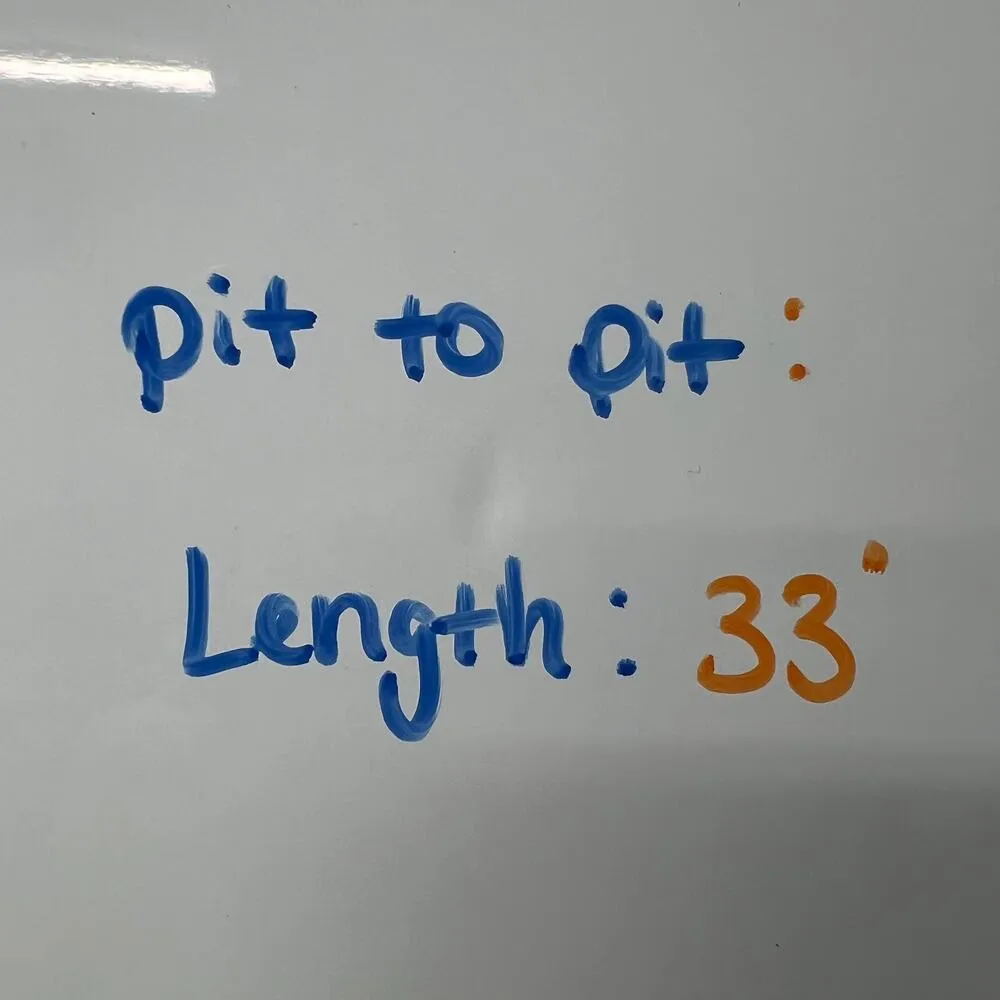 pit to pit :
Length : 33"